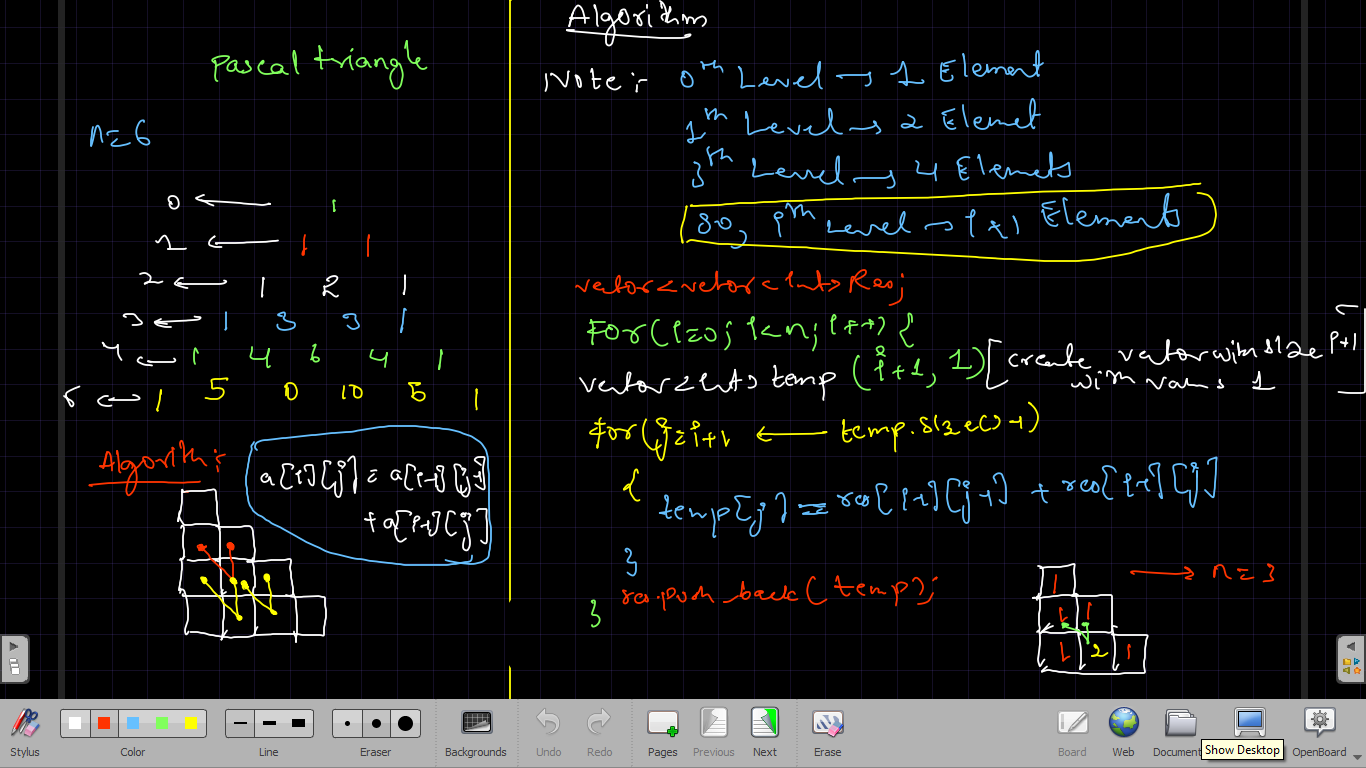 Pascal triangle
n=6
0 ← 1
1 ← 1 1
2 ← 1 2 1
3 ← 1 3 3 1
4 ← 1 4 6 4 1
5 ← 1 5 10 10 5 1
Algorithm:
a[i][j] = a[i-1][j-1]
+ a[i-1][j]
Algorithm
Note:- 0th Level → 1 Element
1th Level → 2 Elemet
3th Level → 4 Elemets
So, ith Level → i+1 Elements
vector<vector<int> Res;
For(i=0; i<n; i++) {
vector<int> temp (i+1, 1) [create vector with size i+1
with values 1
for(j=i+1 ← temp.size()-1)
{
temp[j] = res[i-1][j-1] + res[i-1][j]
}
res.push_back(temp);
}
1 → n=3
1 1
1 2 1
Stylus
Color
Line
Eraser
Backgrounds
Undo
Redo
Pages
Previous
Next
Erase
Board
Web
Document
Show Desktop
OpenBoard